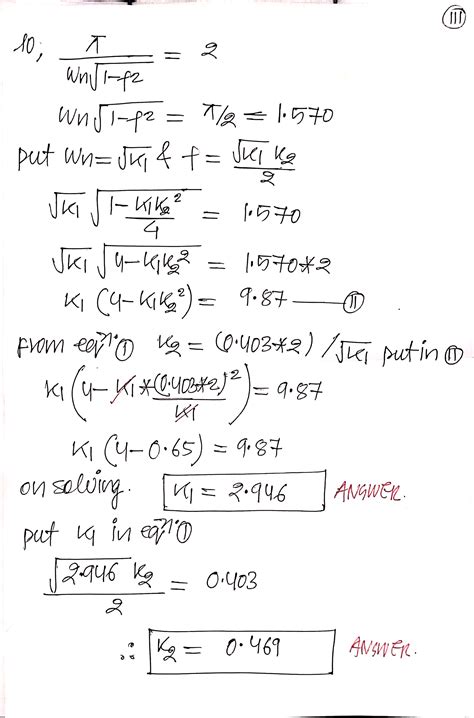 III
so, π / (Wn√(1-ρ2)) = 2
Wn√(1-ρ2) = π/2 = 1.570
put Wn = √K1 & ρ = √K1 K2 / 2
√K1 √(1 - K1K2² / 4) = 1.570
√K1 √(4-K1K2²) = 1.570*2
K1 (4-K1K2²) = 9.87 — II
from eqn. I K2 = (0.403*2)/√K1 put in II
K1 (4 - K1*(0.403*2)² / K1) = 9.87
K1 (4-0.65) = 9.87
on solving. K1 = 2.946 ANSWER.
put K1 in eqn. I
√2.946 K2 / 2 = 0.403
∴ K2 = 0.469 ANSWER.